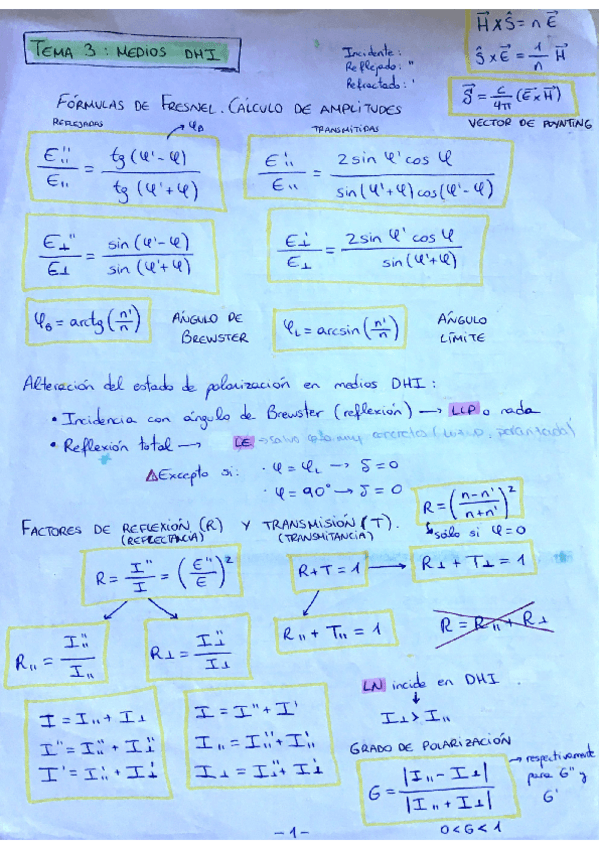 TEMA 3: MEDIOS DHI
Incidente:
Reflejado: "
Refractado: '
H⃗ x Ŝ = n E⃗
Ŝ x E⃗ = 1/n H⃗
S⃗ = c/4π (E⃗ x H⃗)
VECTOR DE POYNTING
FÓRMULAS DE FRESNEL. CÁLCULO DE AMPLITUDES
REFLEJADAS
→ φB
TRANSMITIDAS
E"ıı / Eıı = tg (φ'-φ) / tg (φ'+φ)
E'ıı / Eıı = 2 sin φ' cos φ / sin (φ'+φ) cos (φ'-φ)
E⊥" / E⊥ = sin (φ'-φ) / sin (φ'+φ)
E⊥' / E⊥ = 2 sin φ' cos φ / sin (φ'+φ)
φB = arctg (n'/n)
ÁNGULO DE BREWSTER
φL = arcsin (n'/n)
ÁNGULO LÍMITE
Alteración del estado de polarización en medios DHI:
• Incidencia con ángulo de Brewster (reflexión) → LLP o nada
• Reflexión total → LE → salvo muy concretos
⚠Excepto si: · φ = φL → δ = 0
· φ = 90° → δ = 0
R = (n-n' / n+n')²
↳ sólo si φ = 0
FACTORES DE REFLEXIÓN (R) Y TRANSMISIÓN (T).
(REFLECTANCIA) (TRANSMITANCIA)
R = I" / I = (E" / E)²
R+T = 1 → R⊥ + T⊥ = 1
Rıı = I"ıı / Iıı
R⊥ = I"⊥ / I⊥
Rıı + Tıı = 1
R = Rıı + R⊥
LN incide en DHI
↓
I⊥ > Iıı
I = Iıı + I⊥
I" = I"ıı + I"⊥
I' = I'ıı + I'⊥
I = I" + I'
Iıı = I"ıı + I'ıı
I⊥ = I"⊥ + I'⊥
GRADO DE POLARIZACIÓN
G = |Iıı - I⊥| / |Iıı + I⊥|
→ respectivamente
para G" y
G'
0 < G < 1
- 1 -